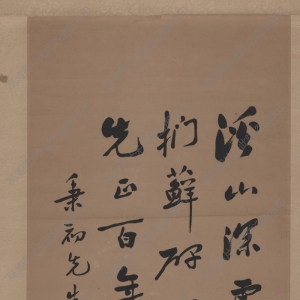 溪山深
捫蘚
先正百年
秉初先生